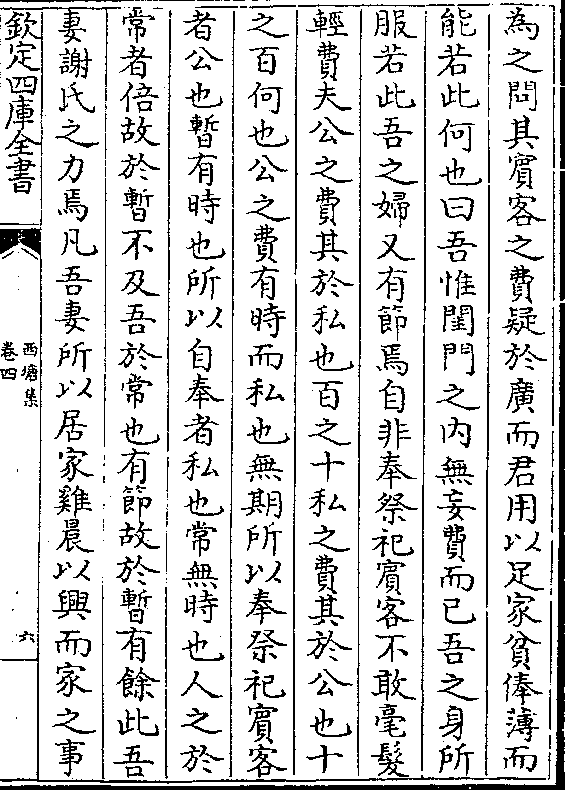 為之問其賓客之費疑於廣而君用以足家貧俸薄而
能若此何也曰吾惟閨門之内無妄費而已吾之身所
服若此吾之婦又有節焉自非奉祭祀賓客不敢毫髮
輕費夫公之費其於私也百之十私之費其於公也十
之百何也公之費有時而私也無期所以奉祭祀賓客
者公也暫有時也所以自奉者私也常無時也人之於
常者倍故於暫不及吾於常也有節故於暫有餘此吾
妻謝氏之力焉凡吾妻所以居家雞晨以興而家之事
欽定四庫全書
西塘集
卷四
六